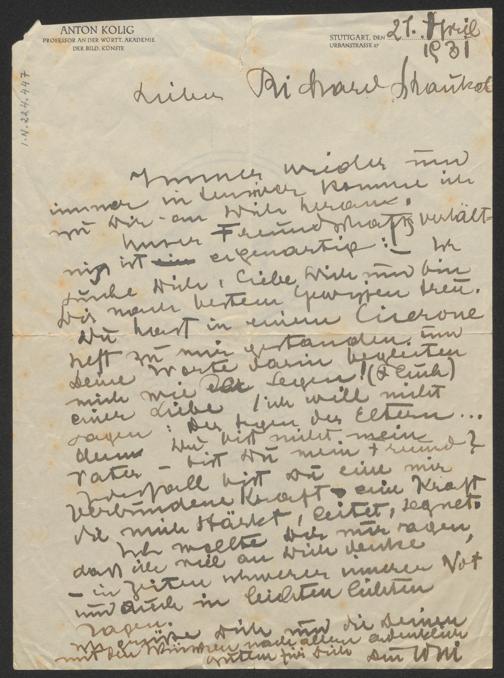 ANTON KOLIG
PROFESSOR AN DER WÜRTT. AKADEMIE
DER BILD. KÜNSTE
STUTTGART, DEN 27. April
URBANSTRASSE 1931
I.N. 224.447
Lieber Richard Schaukal
Immer wieder und
immer komme ich
zu Dir an Dich heran.
Unser Freundschaftsverhält-
nis ist ein eigenartig: – Ich
suche Dich, liebe Dich und bin
Dir nach bestem Gewissen treu.
Du hast in einem Cicerone
heft zu mir gestanden und
Deine Worte darin begleiten
mich wie der Segen
einer Liebe / ich will nicht
sagen: der Segen der Eltern ...
denn Du bist nicht mein
Vater – bist Du mein Freund?
Jedesfall bist Du eine mir
verbündene Kraft – eine Kraft
die mich stärkt, leitet, segnet.
Ich wollte Dir nur sagen,
daß ich viel an Dich denke
– in Zeiten schwerer innerer Not
und auch in leichten lichten
Tagen.
Es grüße Dich und die Deinen
mit den Wünschen nach allem
gutem für Dich Dein